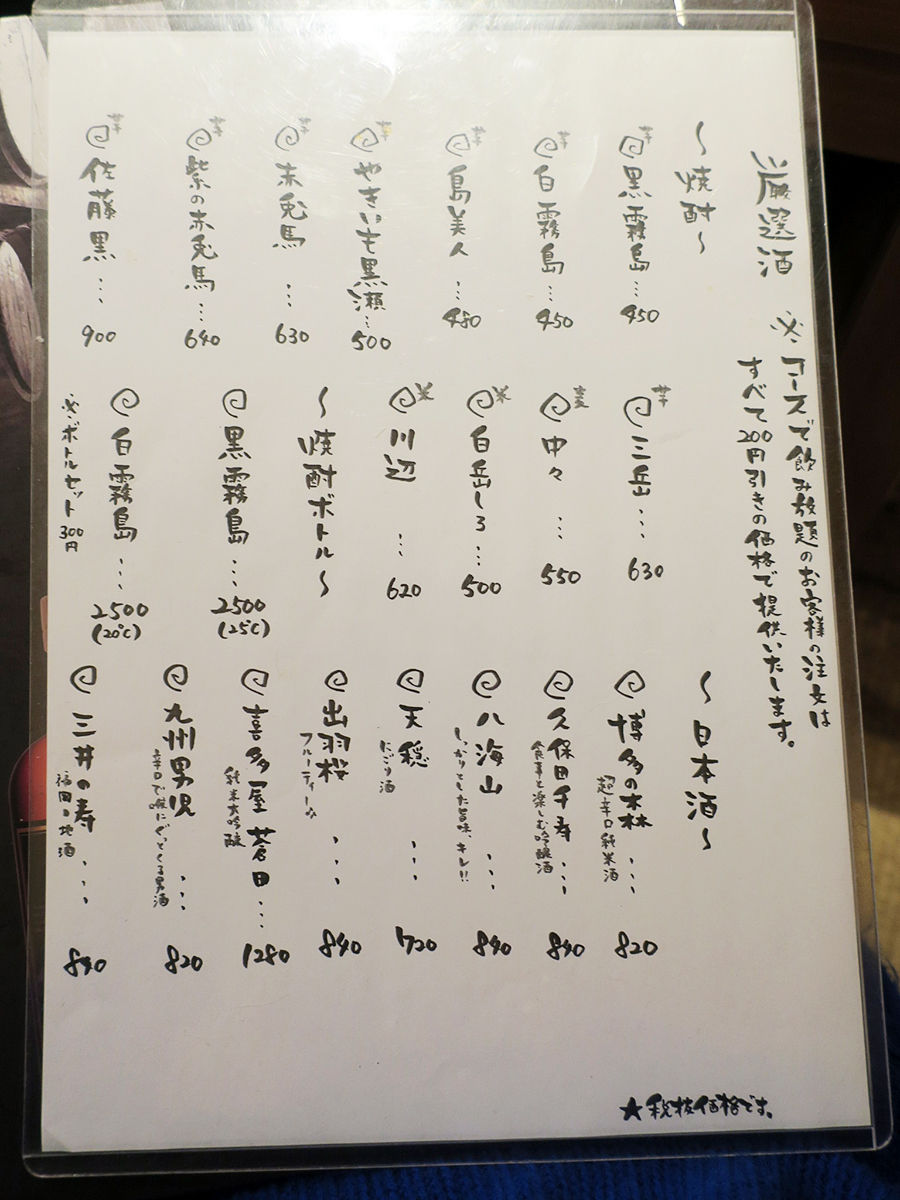 厳選酒
※コースで飲み放題のお客様の注文は
すべて200円引きの価格で提供いたします。
〜焼酎〜
芋 黒霧島… 450
芋 白霧島… 450
芋 島美人… 480
芋 やきいも黒瀬… 500
芋 赤兎馬… 630
芋 紫の赤兎馬… 640
芋 佐藤黒… 900
芋 三岳… 630
麦 中々… 550
米 白岳しろ… 500
米 川辺… 620
〜焼酎ボトル〜
黒霧島… 2500
(25℃)
白霧島… 2500
(20℃)
※ボトルセット300円
〜日本酒〜
博多の森… 820
超辛口純米酒
久保田千寿… 840
食事と楽しむ吟醸酒
八海山… 840
しっかりとした旨味、キレ!!
天穏… 720
にごり酒
出羽桜… 840
フルーティーな
喜多屋 蒼田… 1280
純米大吟醸
九州男児… 820
辛口で喉にぐっとくる男酒
三井の寿… 840
福岡の地酒
★税抜価格です。